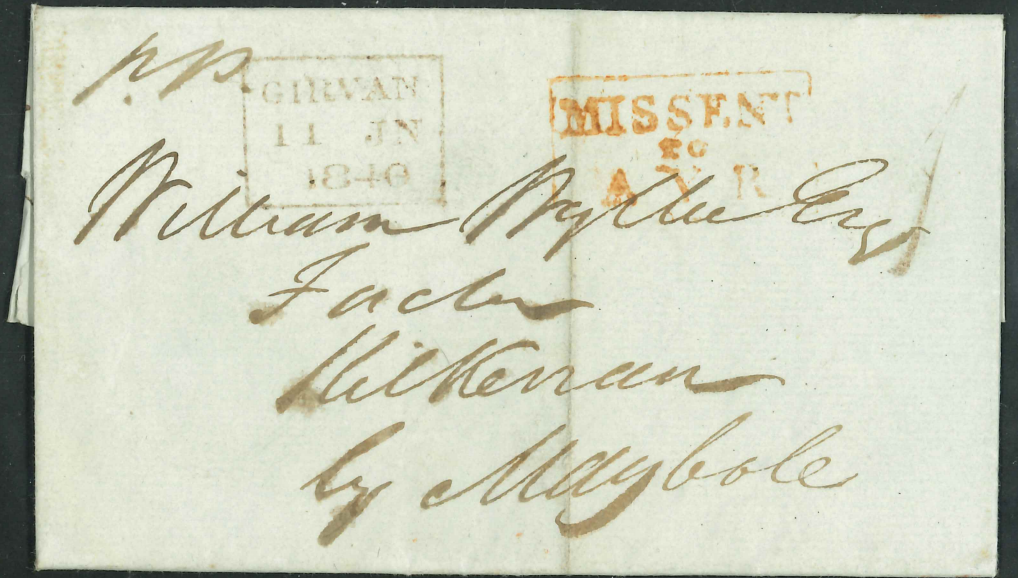 p.p.
GIRVAN
11 JN
1840
MISSENT
TO
AYR
William Wyllie Esq
Factor
Kilkerran
by Maybole